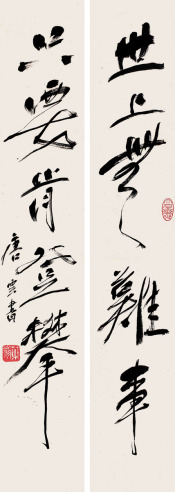 世上無難事
只要肯登攀
唐雲書